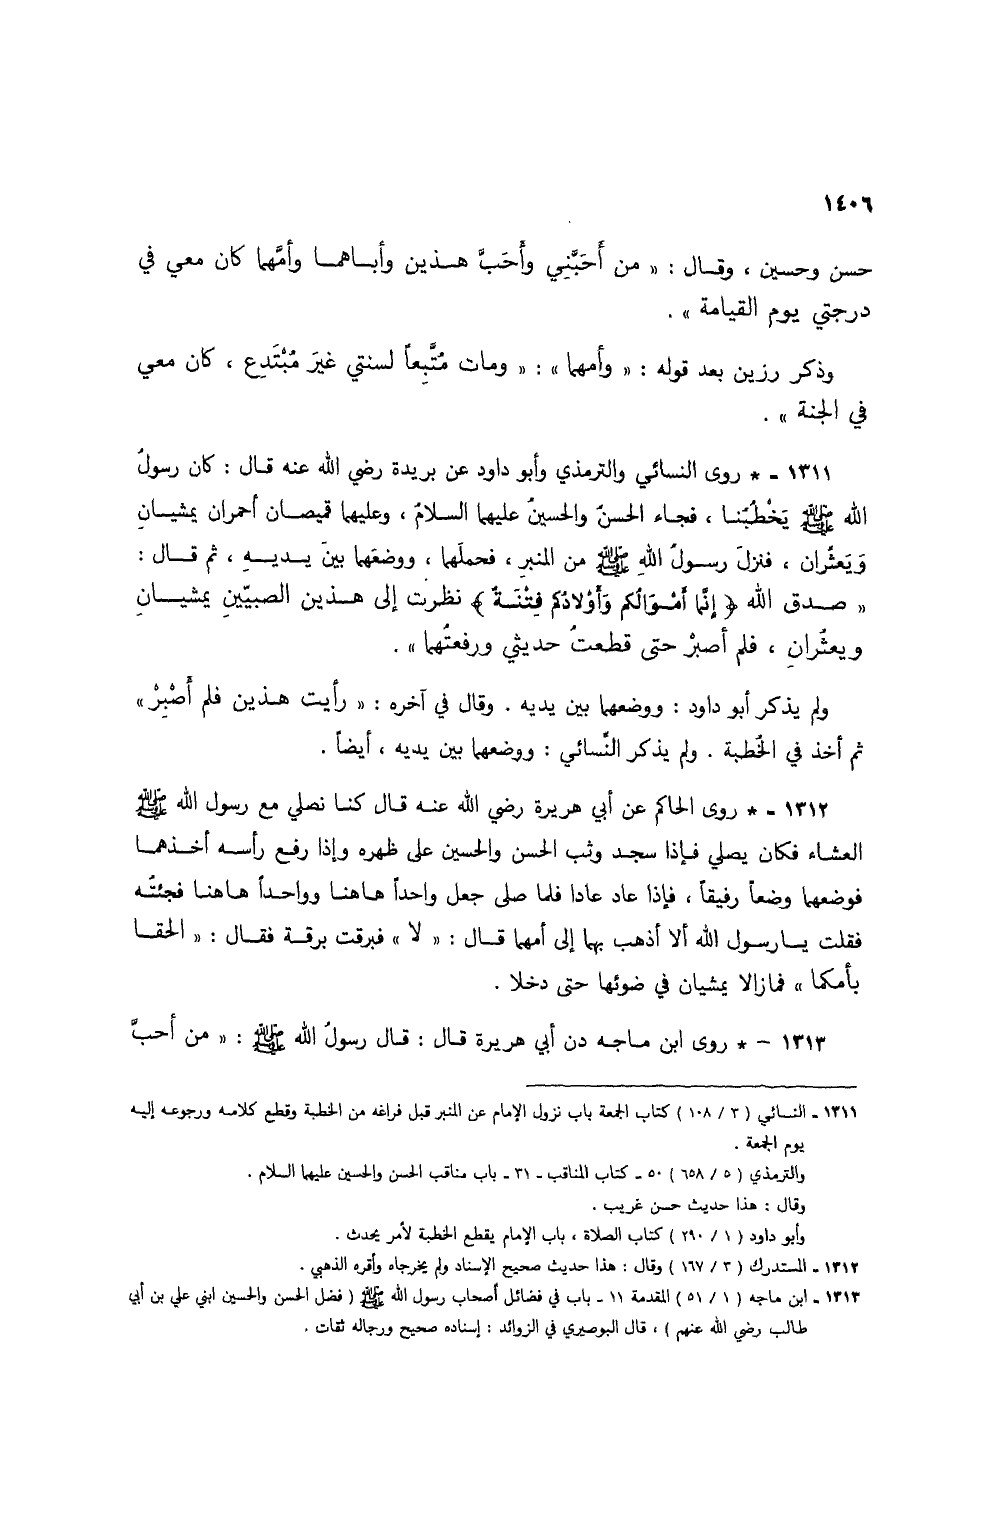 ١٤٠٦
حسن وحسين ، وقـال : « من أَحَبَّنِي وأَحَبَّ هـذين وأبـاهمـا وأمَّهما كان معي في
درجتي يوم القيامة » .
وذكر رزين بعد قوله : « وأمهما » : « ومات مُتَّبِعاً لسنتي غيرَ مُبْتَدِعٍ ، كان معي
في الجنة » .
١٣١١ - * روى النسائي والترمذي وأبو داود عن بريدة رضي الله عنه قـال : كان رسولُ
الله ﷺ يَخْطُبُنا ، فجـاء الحسنُ والحسينُ عليهما السلامُ ، وعليهما قميصـان أحمران يمشيـانِ
وَيَعثُران ، فنزلَ رسـولُ اللهِ ﷺ من المنبرِ ، فحملَهما ، ووضعَهما بينَ يـديـهِ ، ثم قـال :
« صـدق الله ﴿ إنَّما أمْـوَالُكم وَأَوْلادُكم فِتْنَـةٌ ﴾ نظرتُ إلى هـذين الصبيّينِ يمشيـانِ
ويعثُرانِ ، فلم أصبرْ حتى قطعتُ حديثي ورفعتُهما » .
ولم يذكر أبو داود : ووضعهما بين يديه . وقال في آخره : « رأيت هـذين فلم أَصْبِرْ »
ثم أخذ في الخُطبة . ولم يذكر النَّسائي : ووضعهما بين يديه ، أيضاً .
١٣١٢ - * روى الحاكم عن أبي هريرة رضي الله عنـه قـال كنـا نصلي مع رسول الله ﷺ
العشاء فكان يصلي فـإذا سجـد وثب الحسن والحسين على ظهره وإذا رفـع رأسـه أخـذهمـا
فوضعهما وضعاً رفيقاً ، فإذا عاد عادا فلما صلى جعل واحداً هـاهنـا وواحـداً هـاهنـا فجئتُـه
فقلت يـارسـول الله ألا أذهب بهما إلى أمهما قـال : « لا » فبرقت برقـة فقـال : « الحقـا
بأمكما » فمازالا يمشيان في ضوئها حتى دخلا .
١٣١٣ - * روى ابن مـاجـه دن أبي هريرة قـال : قـال رسولُ الله ﷺ : « من أحبَّ
١٣١١ - النسـائي ( ٣ / ١٠٨ ) كتاب الجمعة باب نزول الإمام عن المنبر قبل فراغه من الخطبة وقطع كلامـه ورجوعـه إليـه
يوم الجمعة .
والترمذي ( ٥ / ٦٥٨ ) ٥٠ - كتاب المناقب - ٣١ - باب مناقب الحسن والحسين عليهما السلام .
وقال : هذا حديث حسن غريب .
وأبو داود ( ١ / ٢٩٠ ) كتاب الصلاة ، باب الإمام يقطع الخطبة لأمر يحدث .
١٣١٢ - المستدرك ( ٣ / ١٦٧ ) وقال : هذا حديث صحيح الإسناد ولم يخرجاه وأقره الذهبي .
١٣١٣ - ابن ماجه ( ١ / ٥١ ) المقدمة ١١ - باب في فضائل أصحاب رسول الله ﷺ ( فضل الحسن والحسين ابني علي بن أبي
طالب رضي الله عنهم ) ، قال البوصيري في الزوائد : إسناده صحيح ورجاله ثقات .